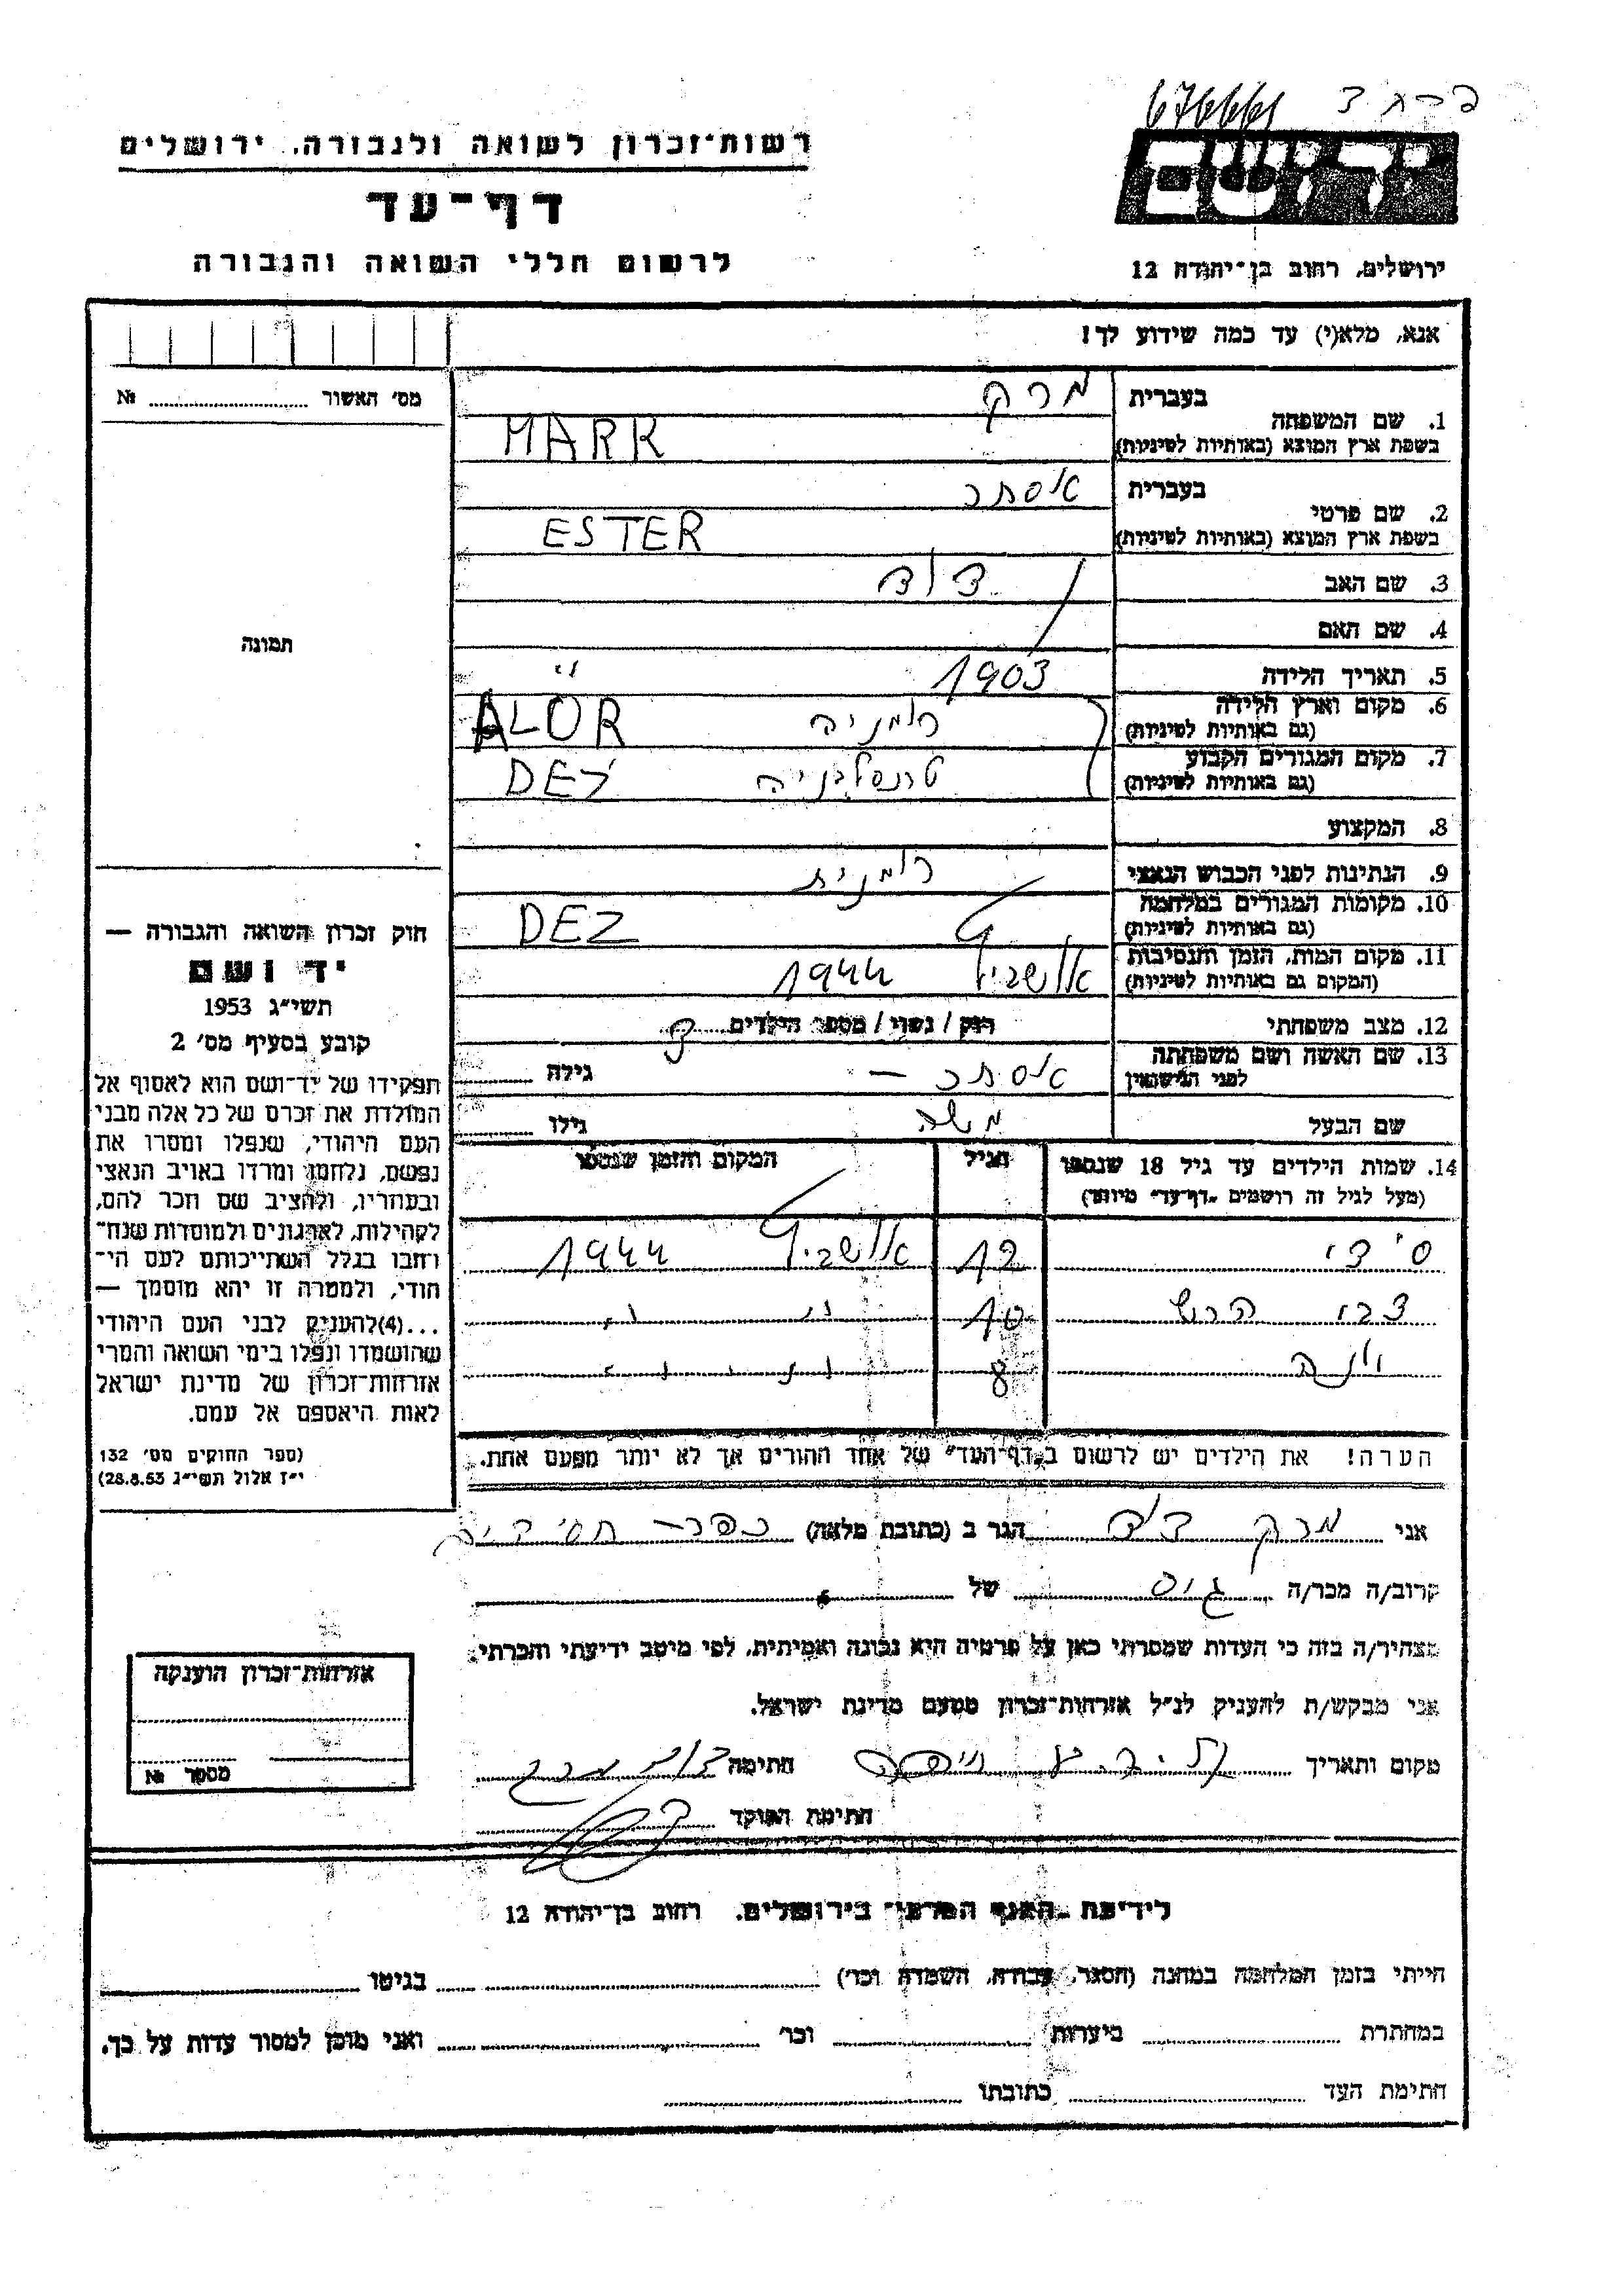 67666
רשות־זכרון לשואה ולגבורה, ירושלים
יד ושם
דף־עד
לרשום חללי השואה והגבורה
ירושלים, רחוב בן־יהודה 12
אנא, מלא(י) עד כמה שידוע לך!
מס' האשור № 
בעברית מרק
1. שם המשפחה
בשפת ארץ המוצא (באותיות לטיניות) MARK
בעברית אסתר
2. שם פרטי
בשפת ארץ המוצא (באותיות לטיניות) ESTER
3. שם האב דוד
4. שם האם
תמונה
5. תאריך הלידה 1903
6. מקום וארץ הלידה
(גם באותיות לטיניות) רומניה ALÖR
7. מקום המגורים הקבוע
(גם באותיות לטיניות) טרנסלבניה DEJ
8. המקצוע
9. הנתינות לפני הכבוש הנאצי רומנית
10. מקומות המגורים במלחמה
(גם באותיות לטיניות) DEZ
11. מקום המות, הזמן והנסיבות
(המקום גם באותיות לטיניות) אושביץ 1944
12. מצב משפחתי רווק / נשוי / מספר הילדים
13. שם האשה ושם משפחתה
לפני הנישואין אסתר — גילה
שם הבעל משה גילו
14. שמות הילדים עד גיל 18 שנספו הגיל המקום והזמן שנספו
(מעל לגיל זה רושמים "דף־עד" מיוחד)
סידי 12 אושביץ 1944
צבי הרש 10 " "
יונה 8 " "
הערה! את הילדים יש לרשום ב"דף־העד" של אחד ההורים אך לא יותר מפעם אחת.
חוק זכרון השואה והגבורה —
יד ושם
תשי"ג 1953
קובע בסעיף מס' 2
תפקידו של יד־ושם הוא לאסוף אל
המולדת את זכרם של כל אלה מבני
העם היהודי, שנפלו ומסרו את
נפשם, נלחמו ומרדו באויב הנאצי
ובעוזריו, ולהציב שם וזכר להם,
לקהילות, לארגונים ולמוסדות שנח־
רבו בגלל השתייכותם לעם הי־
הודי, ולמטרה זו יהא מוסמך —
...(4)להעניק לבני העם היהודי
שהושמדו ונפלו בימי השואה והמרי
אזרחות־זכרון של מדינת ישראל
לאות היאספם אל עמם.
(ספר החוקים מס' 132
י"ז אלול תשי"ג 28.8.53)
אני מרק דוד הגר ב (כתובת מלאה) כפר חסידים
קרוב/ה מכר/ה גיס של
מצהיר/ה בזה כי העדות שמסרתי כאן על פרטיה היא נכונה ואמיתית, לפי מיטב ידיעתי והכרתי.
אני מבקש/ת להעניק לנ"ל אזרחות־זכרון מטעם מדינת ישראל.
מקום ותאריך חתימה דוד מרק
חתימת הפוקד
אזרחות־זכרון הוענקה
מספר №
לידיעת הגנף המרכזי בירושלים, רחוב בן־יהודה 12
הייתי בזמן המלחמה במחנה (הסגר, עבודה, השמדה וכו') בגיטו
במחתרת ביערות וכו' ואני מוכן למסור עדות על כך.
חתימת העד כתובתו